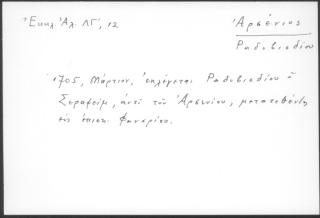 Ἐκκλ. Ἀλ. ΛΓ΄, 12
Ἀρσένιος
Ραδοβισδίου
1705, Μάρτιον, ἐκλέγεται Ραδοβισδίου ὁ
Σεραφείμ, ἀντὶ τοῦ Ἀρσενίου, μετατεθέντος
εἰς ἐπισκ. Φαναρίου.